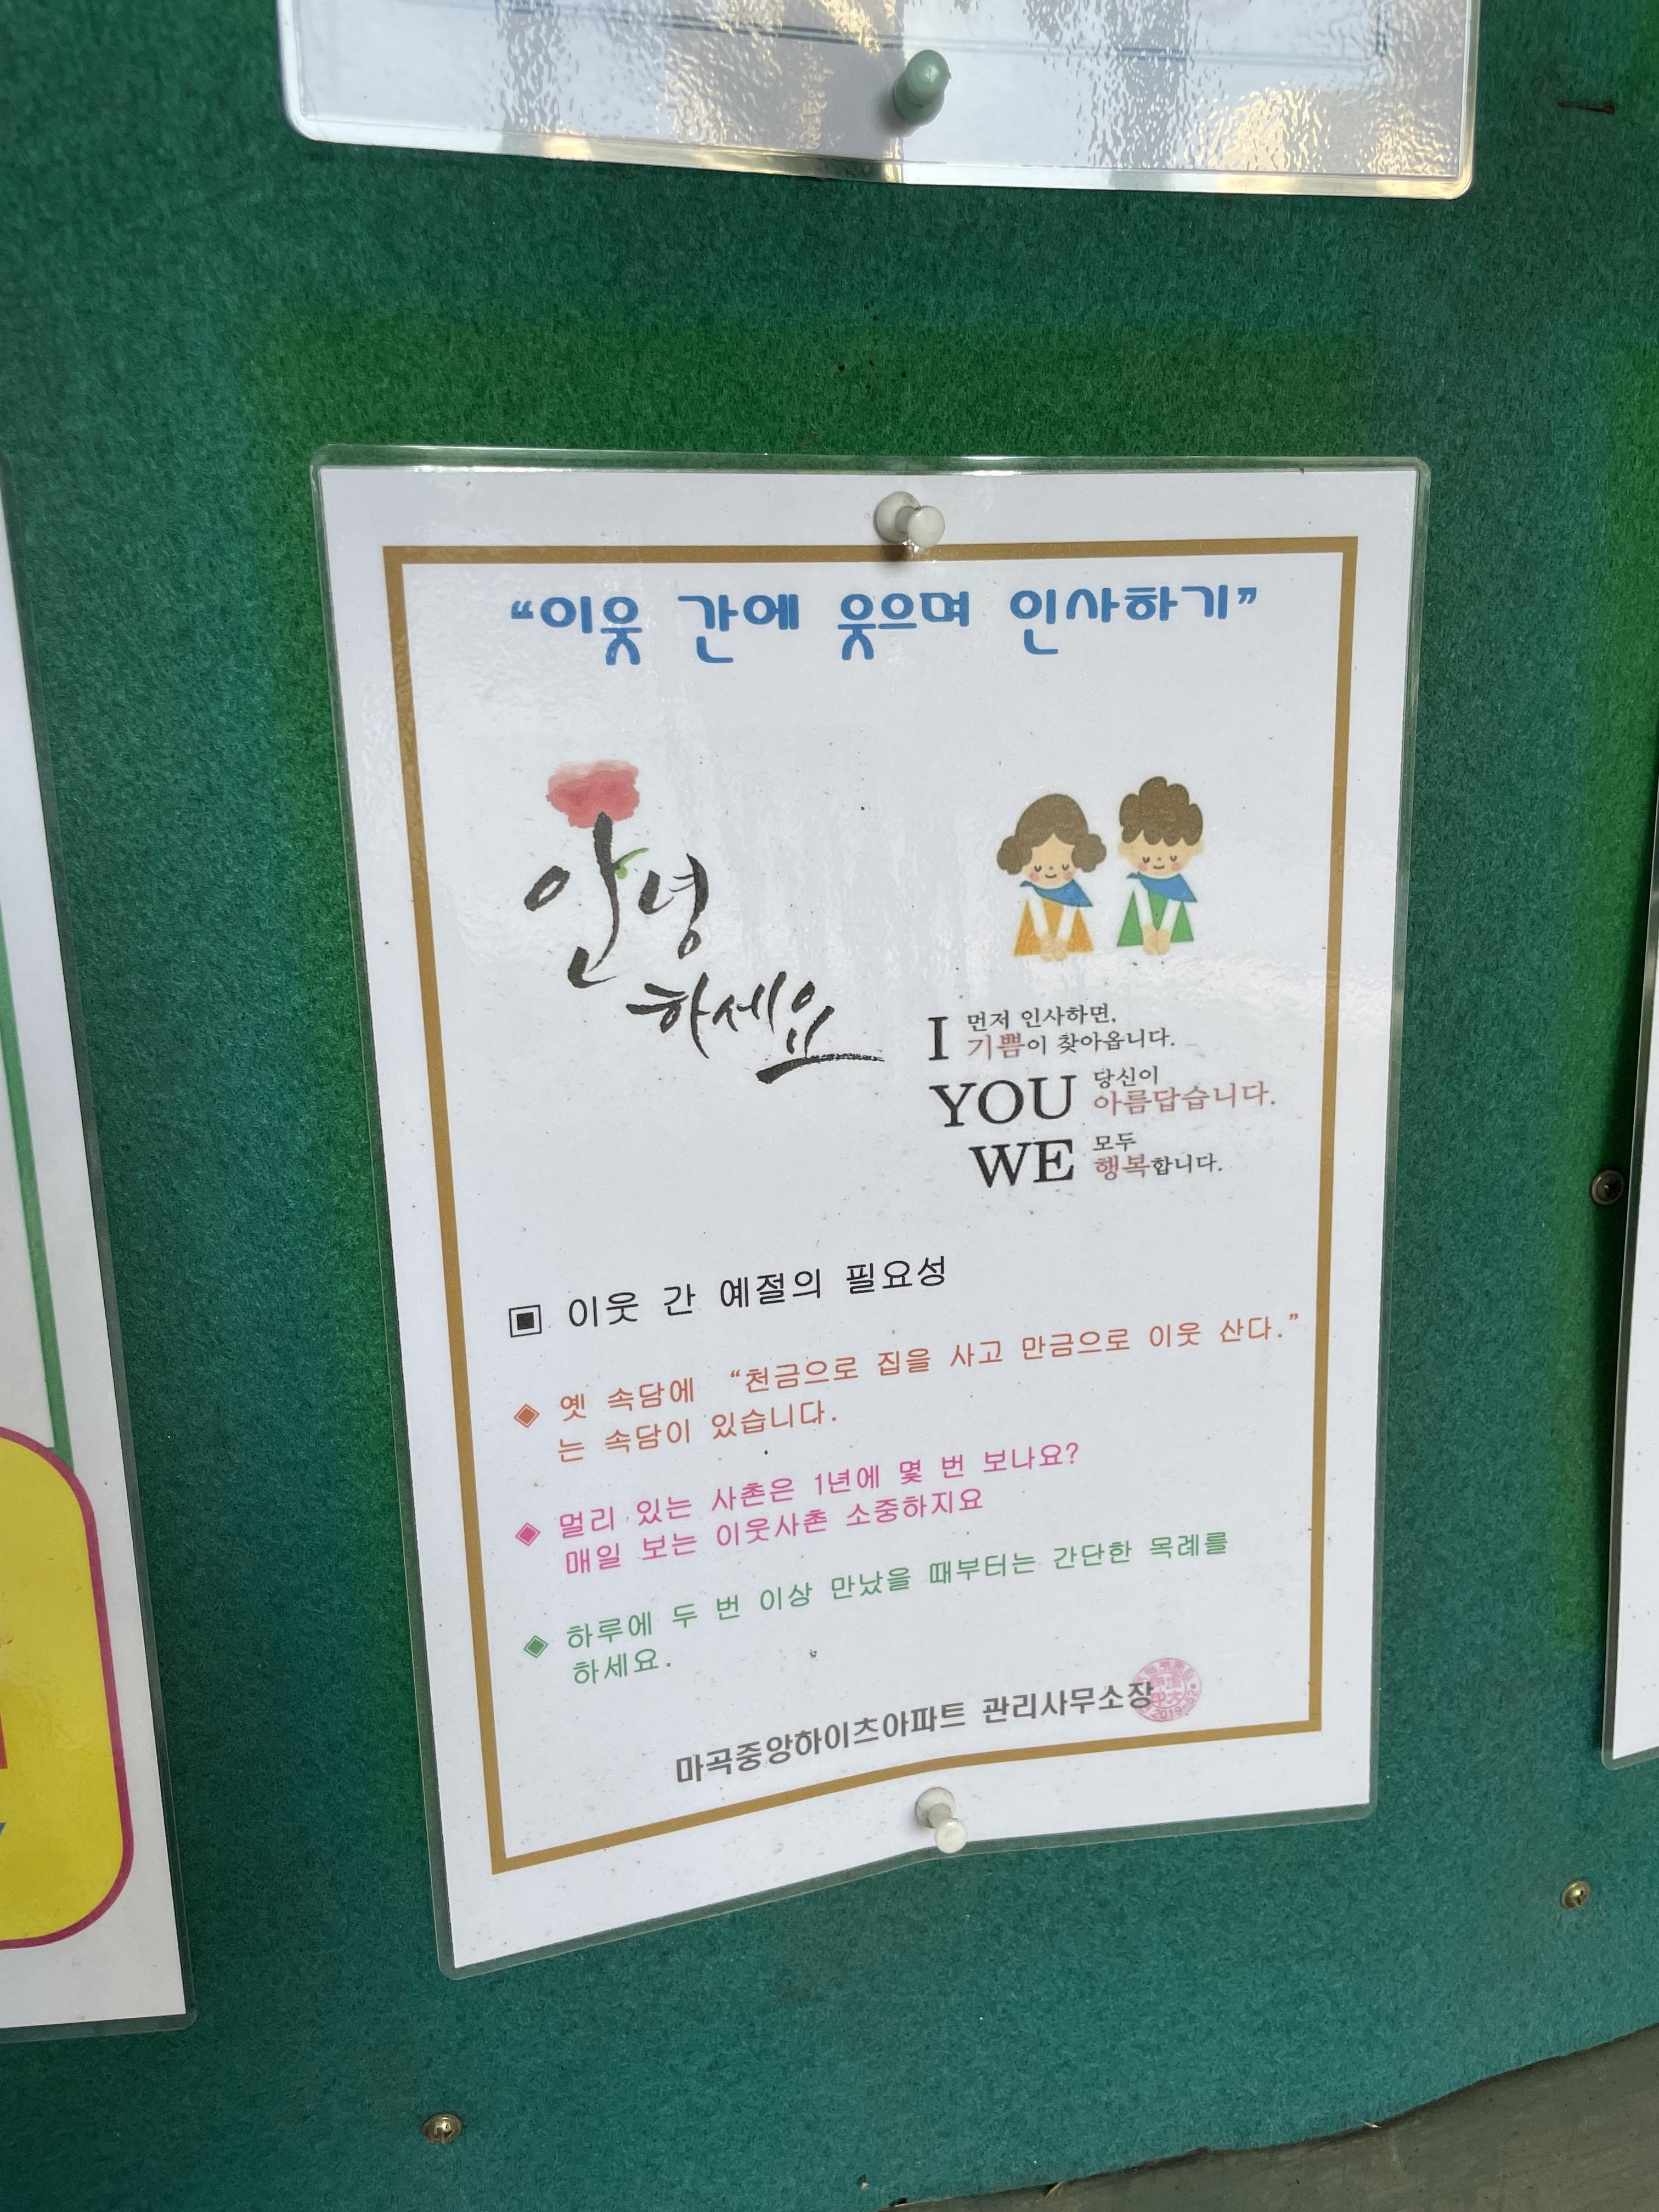 “이웃 간에 웃으며 인사하기”
안녕
하세요
I 먼저 인사하면,
기쁨이 찾아옵니다.
YOU 당신이
아름답습니다.
WE 모두
행복합니다.
▣ 이웃 간 예절의 필요성
◈ 옛 속담에 “천금으로 집을 사고 만금으로 이웃 산다.”
는 속담이 있습니다.
◈ 멀리 있는 사촌은 1년에 몇 번 보나요?
매일 보는 이웃사촌 소중하지요
◈ 하루에 두 번 이상 만났을 때부터는 간단한 목례를
하세요.
마곡중앙하이츠아파트 관리사무소장